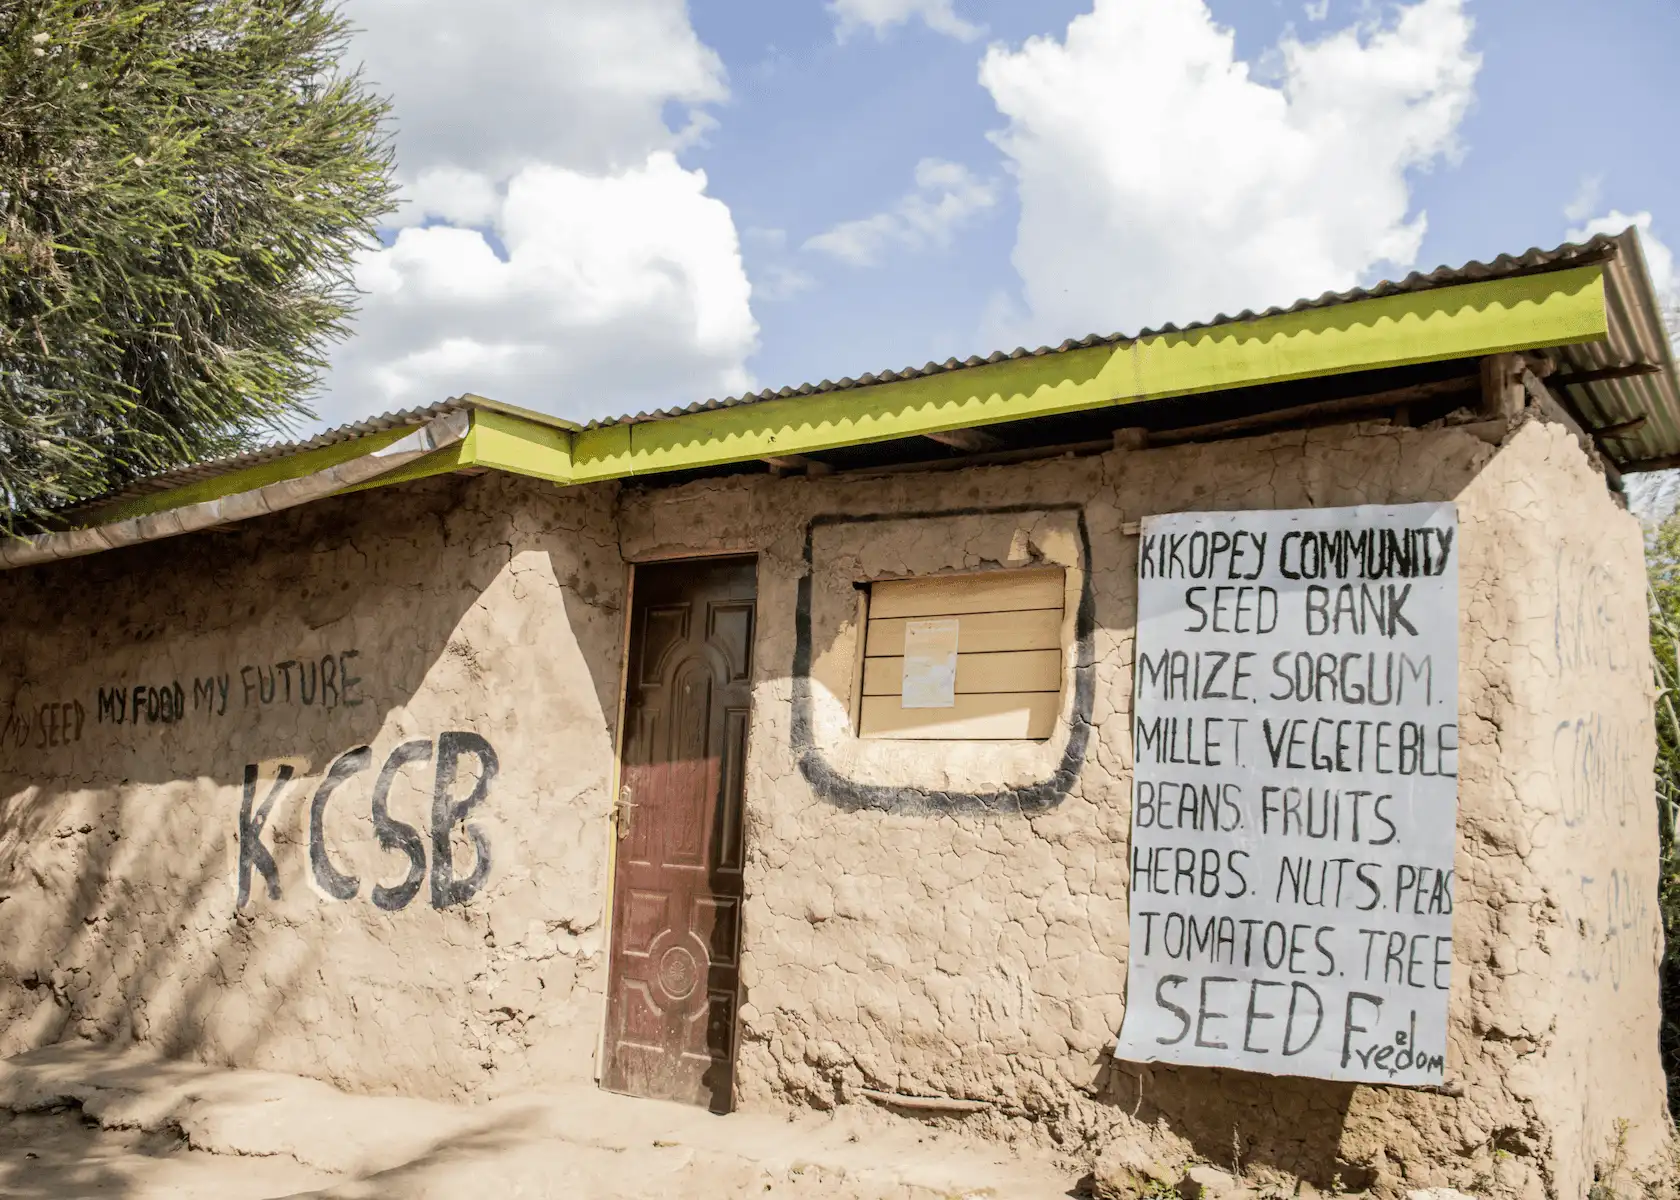 MY SEED MY FOOD MY FUTURE
KCSB
KIKOPEY COMMUNITY
SEED BANK
MAIZE. SORGUM.
MILLET. VEGETEBLE
BEANS. FRUITS.
HERBS. NUTS. PEAS
TOMATOES. TREE
SEED Freedom